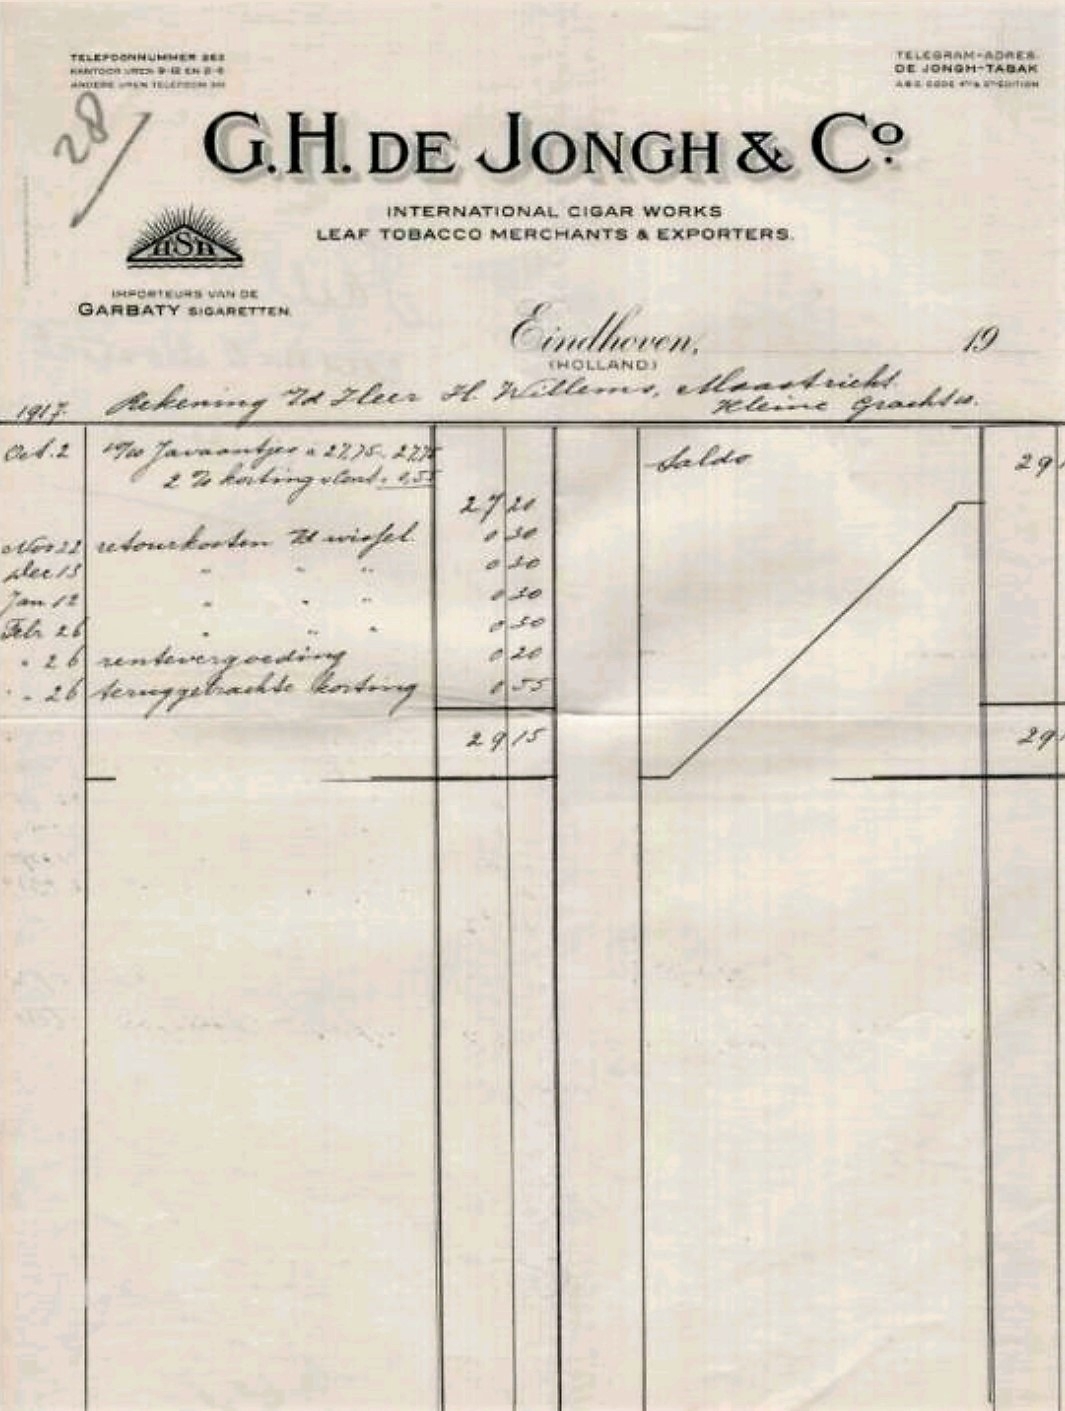 TELEFOONNUMMER 263
KANTOOR UREN 9-12 EN 2-6
ANDERE UREN TELEFOON
TELEGRAM-ADRES.
DE JONGH-TABAK
A.B.C. CODE 4TH & 5TH EDITION
28
G.H. DE JONGH & Co.
INTERNATIONAL CIGAR WORKS
LEAF TOBACCO MERCHANTS & EXPORTERS.
IMPORTEURS VAN DE
GARBATY SIGARETTEN.
Eindhoven, 19
(HOLLAND)
1917. Rekening v/d Heer H. Willems, Maastricht
Kleine Gracht
Oct. 2 Javaantjes a 27,75. 27,75
2 % korting 0,55
27 20
Nov 22 retourkosten v/d wissel 0 30
Dec 13 " " " 0 30
Jan 12 " " " 0 30
Febr. 26 " " " 0 30
" 26 rentevergoeding 0 20
" 26 teruggebrachte korting 0 55
29 15
Saldo 29
29